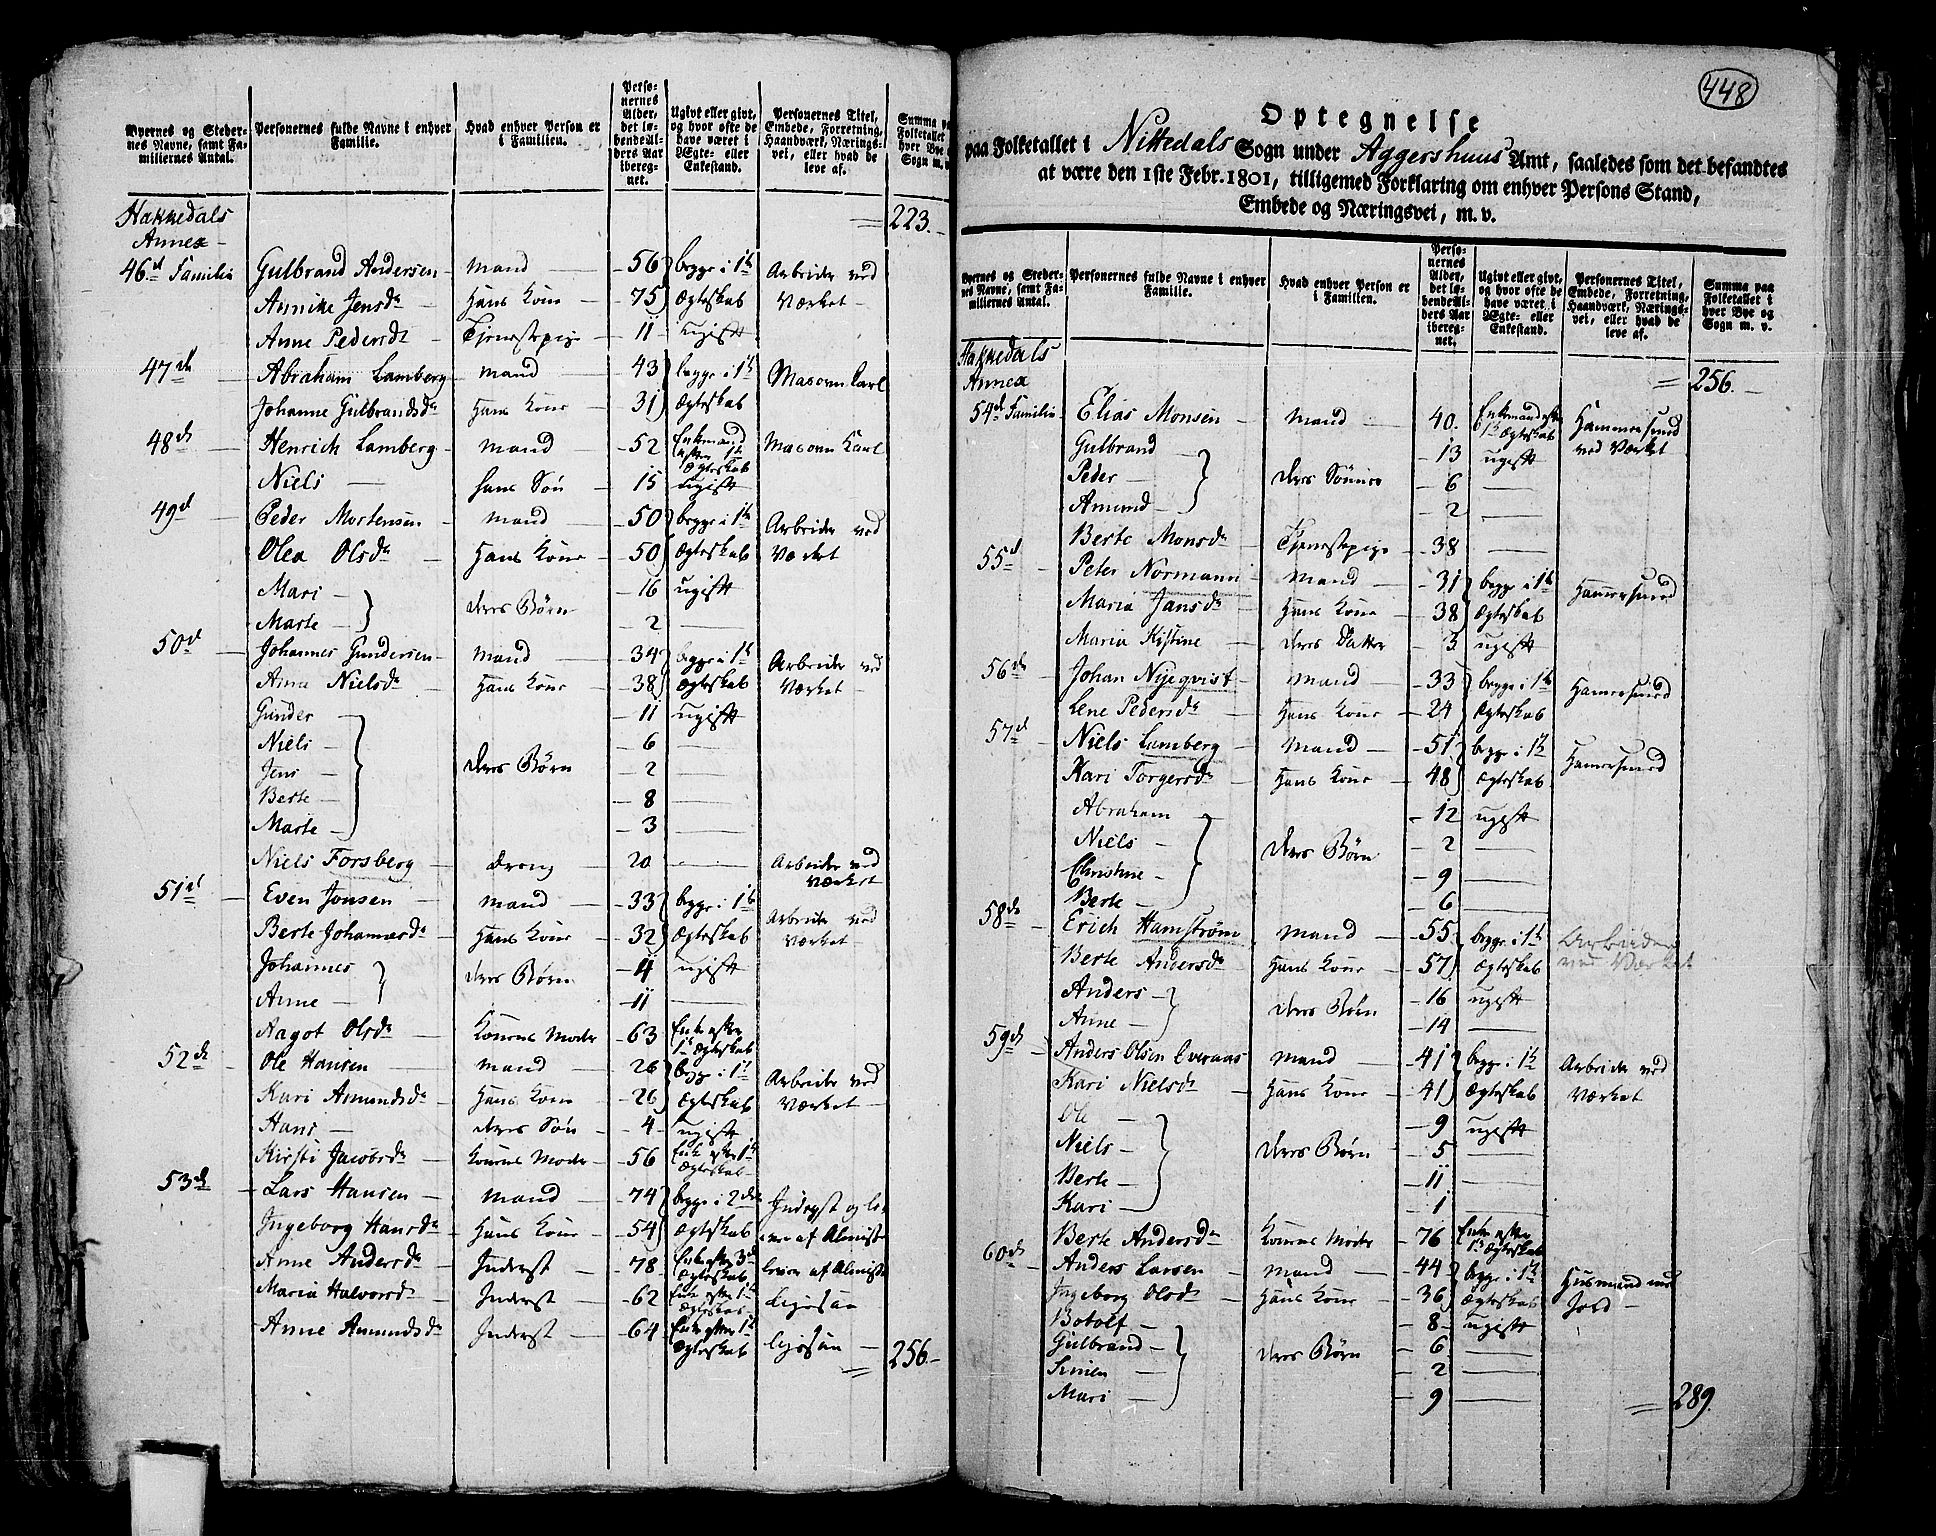 Byernes og Steder-
nes Navne, samt Fa-
miliernes Antal.
Personernes fulde Navne i enhver
Familie.
Hvad enhver Person er
i Familien.
Perso-
nernes
Alder,
det lø-
bende Al-
ders Aar
iberegnet.
Ugivt eller givt,
og hvor ofte de
have været i
Ægte- eller
Enkestand.
Personernes Titel,
Embede, Forretning,
Haandværk, Nærings-
vei, eller hvad de
leve af.
Summa paa
Folketallet
hver Bye og
Sogn m. v.
Hakkedals
Annex
223.
46d Familie Gulbrand Andersen mand 56 begge i 1ste Arbeider ved
Annike Jensdr Hans Kone 75 Ægteskab Værket
Anne Pedersdr Tjenestepige 11 ugift
47de Abraham Lamberg mand 43 begge i 1ste Masovn Karl
Johanne Gulbrandsdr Hans Kone 31 Ægteskab
48de Henrich Lamberg mand 52 Enkemand efter 1te Ægteskab Masovn Karl
Niels hans Søn 15 ugift
49d Peder Mortensen mand 50 begge i 1te Arbeider ved
Olea Olsdr Hans Kone 50 Ægteskab Værket
Mari 16 ugift
deres Børn
Marte 2
50d Johannes Gundersen mand 34 begge i 1te Arbeider ved
Anna Nielsdr Hans Kone 38 Ægteskab Værket
Gunder 11 ugift
Niels 6
Jens deres Børn 2
Berte 8
Marte 3
Niels Forsberg dreng 20 Arbeider ved
Værket
51de Even Jonsen mand 33 begge i 1te Arbeider ved
Berte Johannesdr Hans Kone 32 Ægteskab Værket
Johannes deres Børn 4 ugift
Anne 11
Aagot Olsdr Konens Moder 63 Enke efter 1te Ægteskab
52de Ole Hansen mand 26 begge i 1te Arbeider ved
Kari Amundsdr Hans Kone 26 Ægteskab Værket
Hans deres Søn 4 ugift
Kirsti Jacobsdr Konens Moder 56 Enke efter 1te Ægteskab
53de Lars Hansen mand 74 begge i 2det Inderst og le-
Ingeborg Hansdr Hans Kone 54 Ægteskab ver af Almisse
Anne Andersdr Inderst 78 Enke efter 3d Ægteskab lever af Almisse
Maria Halvorsdr Inderst 62 Enke efter 1te Ægteskab ligesaa
Anne Amundsdr Inderst 64 Enke efter 1te Ægteskab ligesaa
256.
448
Optegnelse
paa Folketallet i Nittedals Sogn under Aggershuus Amt, saaledes som det befandtes
at være den 1ste Febr. 1801, tilligemed Forklaring om enhver Persons Stand,
Embede og Næringsvei, m. v.
Byernes og Steder-
nes Navne, samt Fa-
miliernes Antal.
Personernes fulde Navne i enhver
Familie.
Hvad enhver Person er
i Familien.
Perso-
nernes
Alder,
det lø-
bende Al-
ders Aar
ibereg-
net.
Ugivt eller givt,
og hvor ofte de
have været i
Ægte- eller
Enkestand.
Personernes Titel,
Embede, Forretning,
Haandværk, Nærings-
vei, eller hvad de
leve af.
Summa paa
Folketallet i
hver Bye og
Sogn m. v.
Hakkedals
Annex
256.
54d Familie Elias Monsen mand 40. Enkemand efter 1te Ægteskab Hammersmed
Gulbrand 13 ugift ved Værket
Peder deres Sønner 6
Amund 2
Berte Monsdr Tjenestepige 38
55d Peter Normann mand 31 begge i 1te Hammersmed
Maria Jansdr Hans Kone 38 Ægteskab
Maria Kistine deres Datter 3 ugift
56de Johan Nyeqvist mand 33 begge i 1te Hamersmed
Lene Pedersdr Hans Kone 24 Ægteskab
57d Niels Lamberg mand 51 begge i 1te Hamersmed
Kari Torgersdr Hans Kone 48 Ægteskab
Abraham 12 ugift
Niels deres Børn 2
Christine 9
Berte 6
58de Erich Hamstrøm mand 55 begge i 1te Arbeider
Berte Andersdr Hans Kone 57 Ægteskab ved Værket
Anders deres Børn 16 ugift
Anne 14
59de Anders Olsen Overaas mand 41 begge i 1te Arbeider ved
Kari Nielsdr Hans Kone 41 Ægteskab Værket
Ole 9 ugift
Niels deres Børn 5
Berte 11
Kari 1
Berte Andersdr Konens Moder 76 Enke efter 1te Ægteskab
60de Anders Larsen mand 44 begge i 1te Huusmand med
Ingeborg Olsdr Hans Kone 36 Ægteskab Jord
Botolf 8 ugift
Gulbrand deres Børn 6
Simen 2
Mari 9
289.